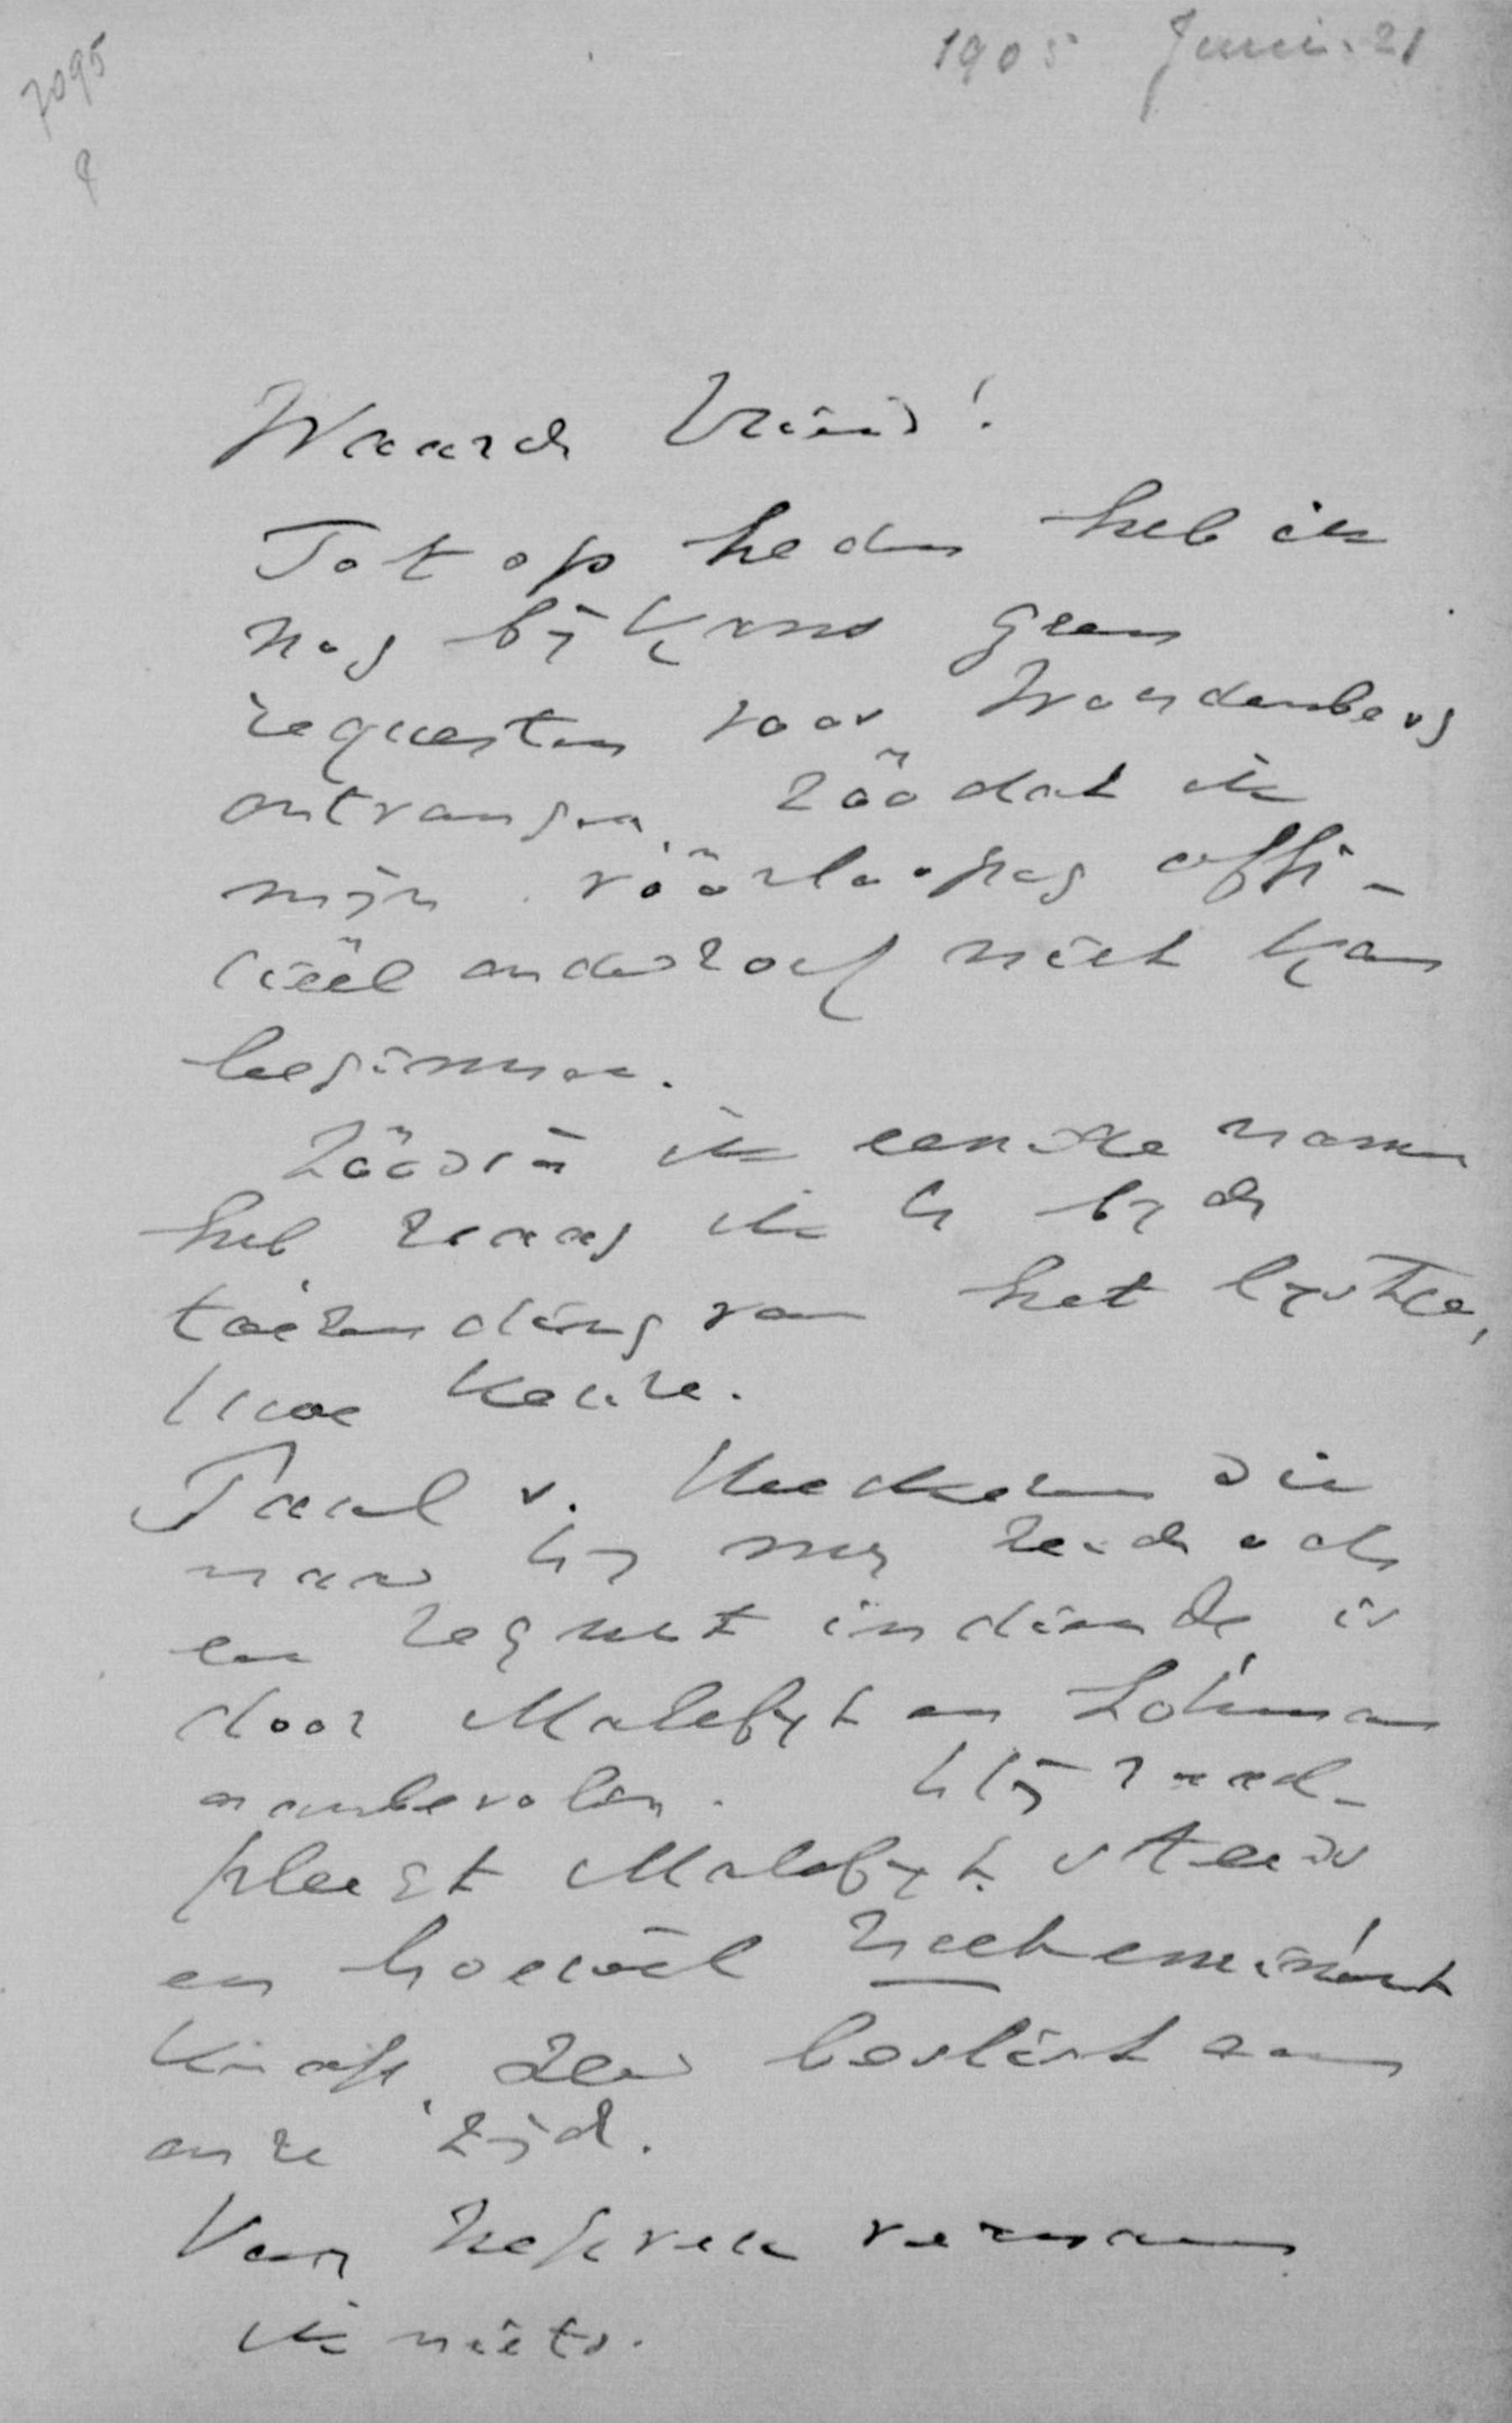 7095
1905 Juni. 21
Waarde Vriend!
Tot op heden heb ik
nog bijkans geen
requesten voor Woudenberg
ontvangen, zoodat ik
mijn voorloopig offi-
cieel onderzoek niet kan
beginnen.
Zoodra ik eenige namen
heb vraag ik U bij de
toezending van het lystje,
Uwe keuze.
Paul v. Heeckeren die
naar hij my zeide ook
een request indiende, is
door Malefyt en Lohman
aanbevolen. Hij raad-
pleegt Malefyt steeds
en hoewel niet eminent
knap, zeer beslist aan
onze zijd.
Van vernam
ik niets.